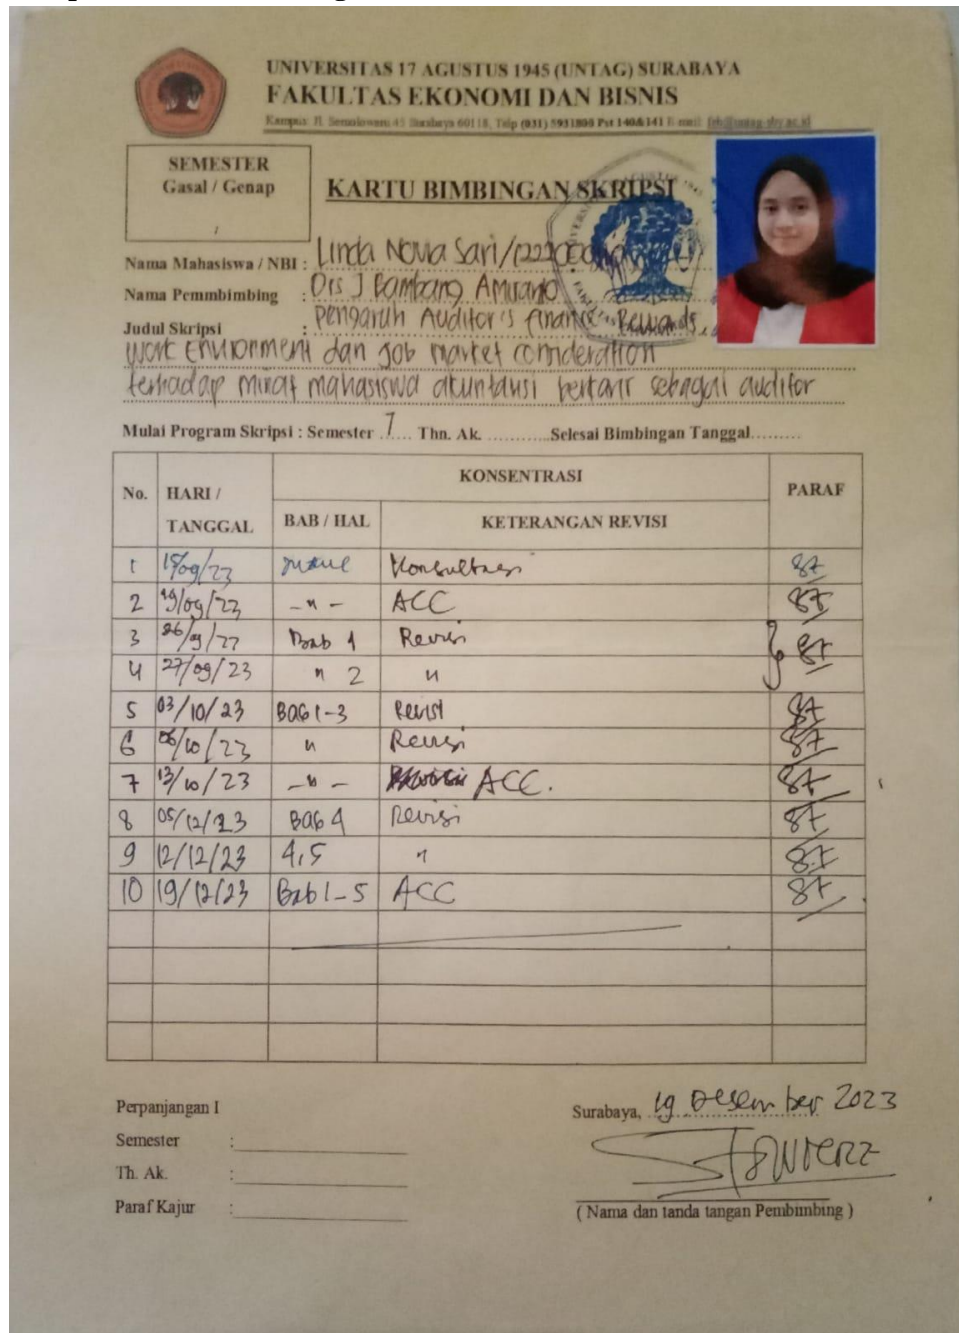 UNIVERSITAS 17 AGUSTUS 1945 (UNTAG) SURABAYA
FAKULTAS EKONOMI DAN BISNIS
Kampus: Jl. Semolowaru 45 Surabaya 60118, Telp (031) 5931800 Pst 140&141 E-mail:
SEMESTER
Gasal / Genap
/
KARTU BIMBINGAN SKRIPSI
Nama Mahasiswa / NBI : Linda Novia Sari/
Nama Pemmbimbing : Drs J Bambang
Judul Skripsi : Pengaruh Auditor's Finance Rewards,
Work Environment dan Job market consideration
terhadap minat mahasiswa akuntansi berkarir sebagai auditor
Mulai Program Skripsi : Semester 7 Thn. Ak. ........... Selesai Bimbingan Tanggal.........
No. HARI / TANGGAL KONSENTRASI PARAF
BAB / HAL KETERANGAN REVISI
1 /09/23 Konsultasi
2 19/09/23 -"- ACC
3 26/9/23 Bab 1 Revisi
4 27/09/23 " 2 "
5 03/10/23 BAB 1-3 Revisi
6 06/10/23 " Revisi
7 13/10/23 -"- ACC.
8 05/12/23 BAB 4 Revisi
9 12/12/23 4,5 "
10 19/12/23 Bab 1-5 ACC
Perpanjangan I
Semester :
Th. Ak. :
Paraf Kajur :
Surabaya, 19 Desember 2023
( Nama dan tanda tangan Pembimbing )